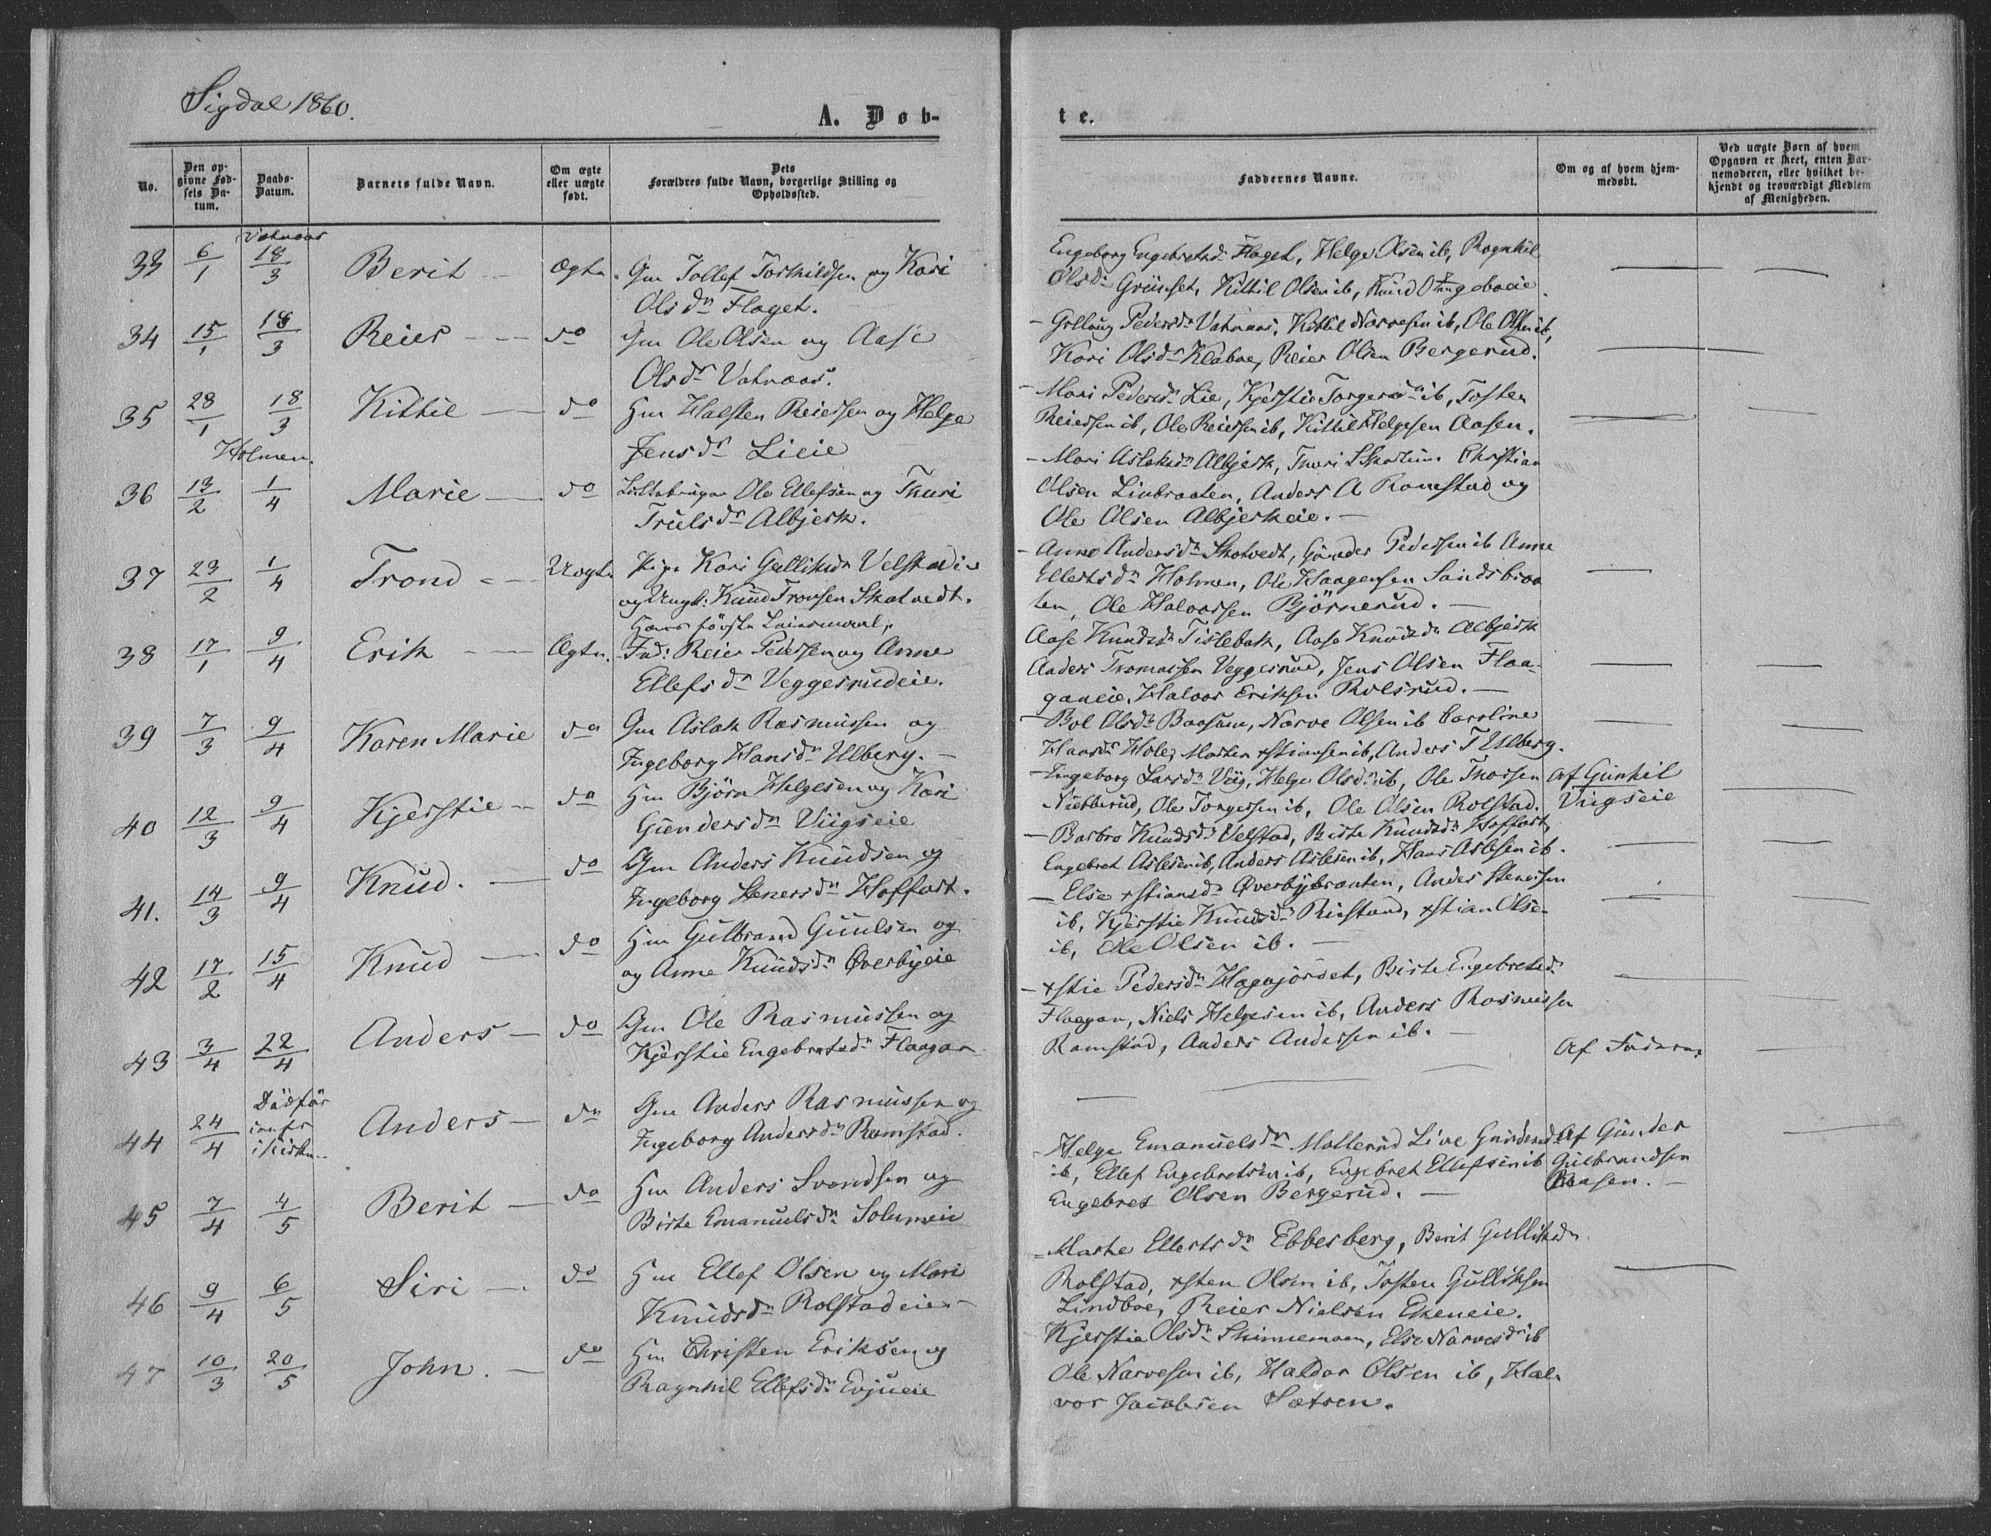 Sigdal 1860.
A. Døb-
te.
No.
Den op-
givne Fød-
sels Da-
tum.
Daabs-
Datum.
Barnets fulde Navn.
Om ægte
eller uægte
født.
Dets
Forældres fulde Navn, borgerlige Stilling og
Opholdssted.
Faddernes Navne.
Om og af hvem hjem-
medøbt.
Ved uægte Børn af hvem
Opgaven er skeet, enten Bar-
nemoderen, eller hvilket be-
kjendt og troværdigt Medlem
af Menigheden.
Vatnaas
33 6/1 18/3 Berit Ægte. Gm Tollef Torkildsen og Kari
Olsdr Flaget.
Engeborg Engebretsdr Flaget, Helge Olsen ib, Ragnhil
Olsdr Grünset, Kittil Olsen ib, Knud
34 15/1 18/3 Reier do Gm Ole Olsen og Aase
Olsdr Vatnaas.
Pedersdr Vatnaas, Kittil Narvesen ib, Ole Olsen ib,
Kari Olsdr Klabøe, Reier Olsen Bergerud.
35 28/1 18/3 Kittil do Hm Halsten Reiersen og Helge
Jensdr Lieie
Mari Pedersdr Lie, Kjerstie Torgersdr ib, Tosten
Reiersen ib, Ole Reiersen ib, Kittil Helgesen Aasen.
Holmen.
36 13/2 1/4 Marie do Ole Ellefsen og Thuri
Trulsdr Albjerk.
Mari Aslaksdr Albjerk, Thuri Christian
Olsen Linbraaten, Anders A Ramstad og
Ole Olsen Albjerkeie.
37 23/2 1/4 Trond Uægte Pige Kari Gulliksdr
og Ungk: Knud Tronsen Skatvedt.
Hans første Leiermaal.
Anne Andersdr Skatvedt, Günder Pedersen ib Anne
Ellertsdr Holmen, Ole Haagensen Sandsbraa
ten, Ole Halvorsen Bjørnerud.
38 17/1 9/4 Erik Ægte. Reier Pedersen og Anne
Ellefsdr Veggerudeie.
Aase Knudsdr Tislebak, Aase Knudsdr Albjerk
Anders Thomassen Veggerud, Jens Olsen Flaa-
ganeie, Halvor Eriksen Rolsrud.
39 7/3 9/4 Karen Marie do Gm Aslak Rasmussen og
Ingeborg Hansdr Ulberg.
Bol Olsdr Baasum, Narve Olsen ib Caroline
Hansdr Hole, Morten xstiansen ib, Anders T Ulberg.
40 12/3 9/4 Kjerstie do Hm Bjørn Helgesen og Kari
Gündersdr Viigseie
Engeborg Larsdr Viig, Helge Olsdr ib, Ole Thorsen
Nubberud, Ole Torgersen ib, Ole Olsen Rolstad.
Af Gunhil
Viigseie
41. 14/3 9/4 Knud. do Gm Anders Knudsen og
Ingeborg Hoffart.
Barbro Knudsdr Velstad, Birte Knudsdr Hoffart,
Engebret Aslesen ib, Anders Aslesen ib, Hans Aslesen ib.
42 17/2 15/4 Knud do Hm Gulbrand Guulsen og
og Anne Knudsdr Øverbyeie
Else xstiansdr Øverbybraaten, Anders Stensen
ib, Kjerstie Knudsdr Riistand, xstian Olse-
ib, Ole Olsen ib.
43 3/4 22/4 Anders do Gm Ole Rasmussen og
Kjerstie Engebretsdr Flaagan
xstie Pedersdr Hagajordet, Birte Engebretsdr
Flaagan, Niels Helgesen ib, Anders Rasmussen
Ramstad, Anders Andersen ib.
44 24/4 Anders do Gm Anders Rasmussen og
Ingeborg Andersdr Ramstad.
Af Faderen
45 7/4 4/5 Berit do Hm Anders Svendsen og
Birte Emanuelsdr Solumeie
Helge Emanuelsdr Mallerud Live Gundersdr
ib, Ellef Engebretsen ib, Engebret Ellefsen ib
Engebret Olsen Bergerud.
Af Günder
Gulbrandsen
Aasen.
46 9/4 6/5 Siri do Hm Ellef Olsen og Mari
Knudsdr Rolstadeie
Marte Ellertsdr Ebbesberg, Berit Gulliksdr
Rolstad, xsten Olsen ib, Tosten Gulliksen
Lindboe, Reier Nielsen Ekeneie.
47 10/3 20/5 John. do Hm Christen Eriksen og
Ragnhil Ellefsdr Evjueie
Kjerstie Olsdr Skinnemoen, Else Narvesdr ib
Ole Narvesen ib, Haldor Olsen ib, Hal-
vor Jacobsen Sætsen.